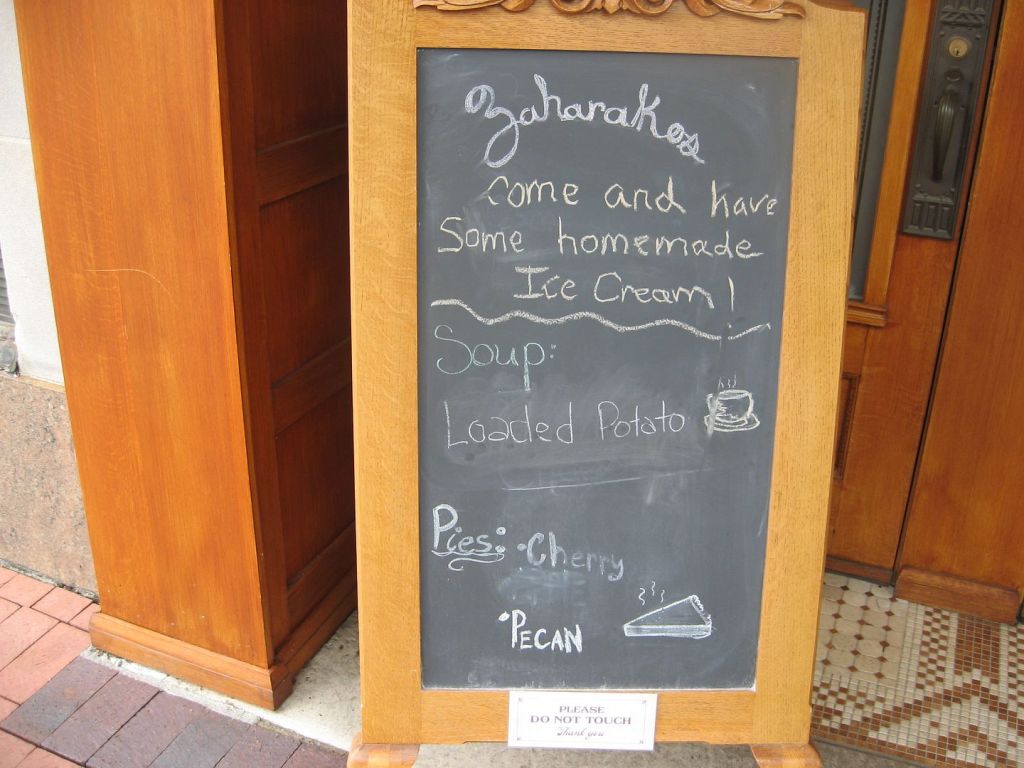 Zaharakos
Come and have
Some homemade
Ice Cream!
Soup:
Loaded Potato
Pies: •Cherry
•PECAN
PLEASE
DO NOT TOUCH
Thank you